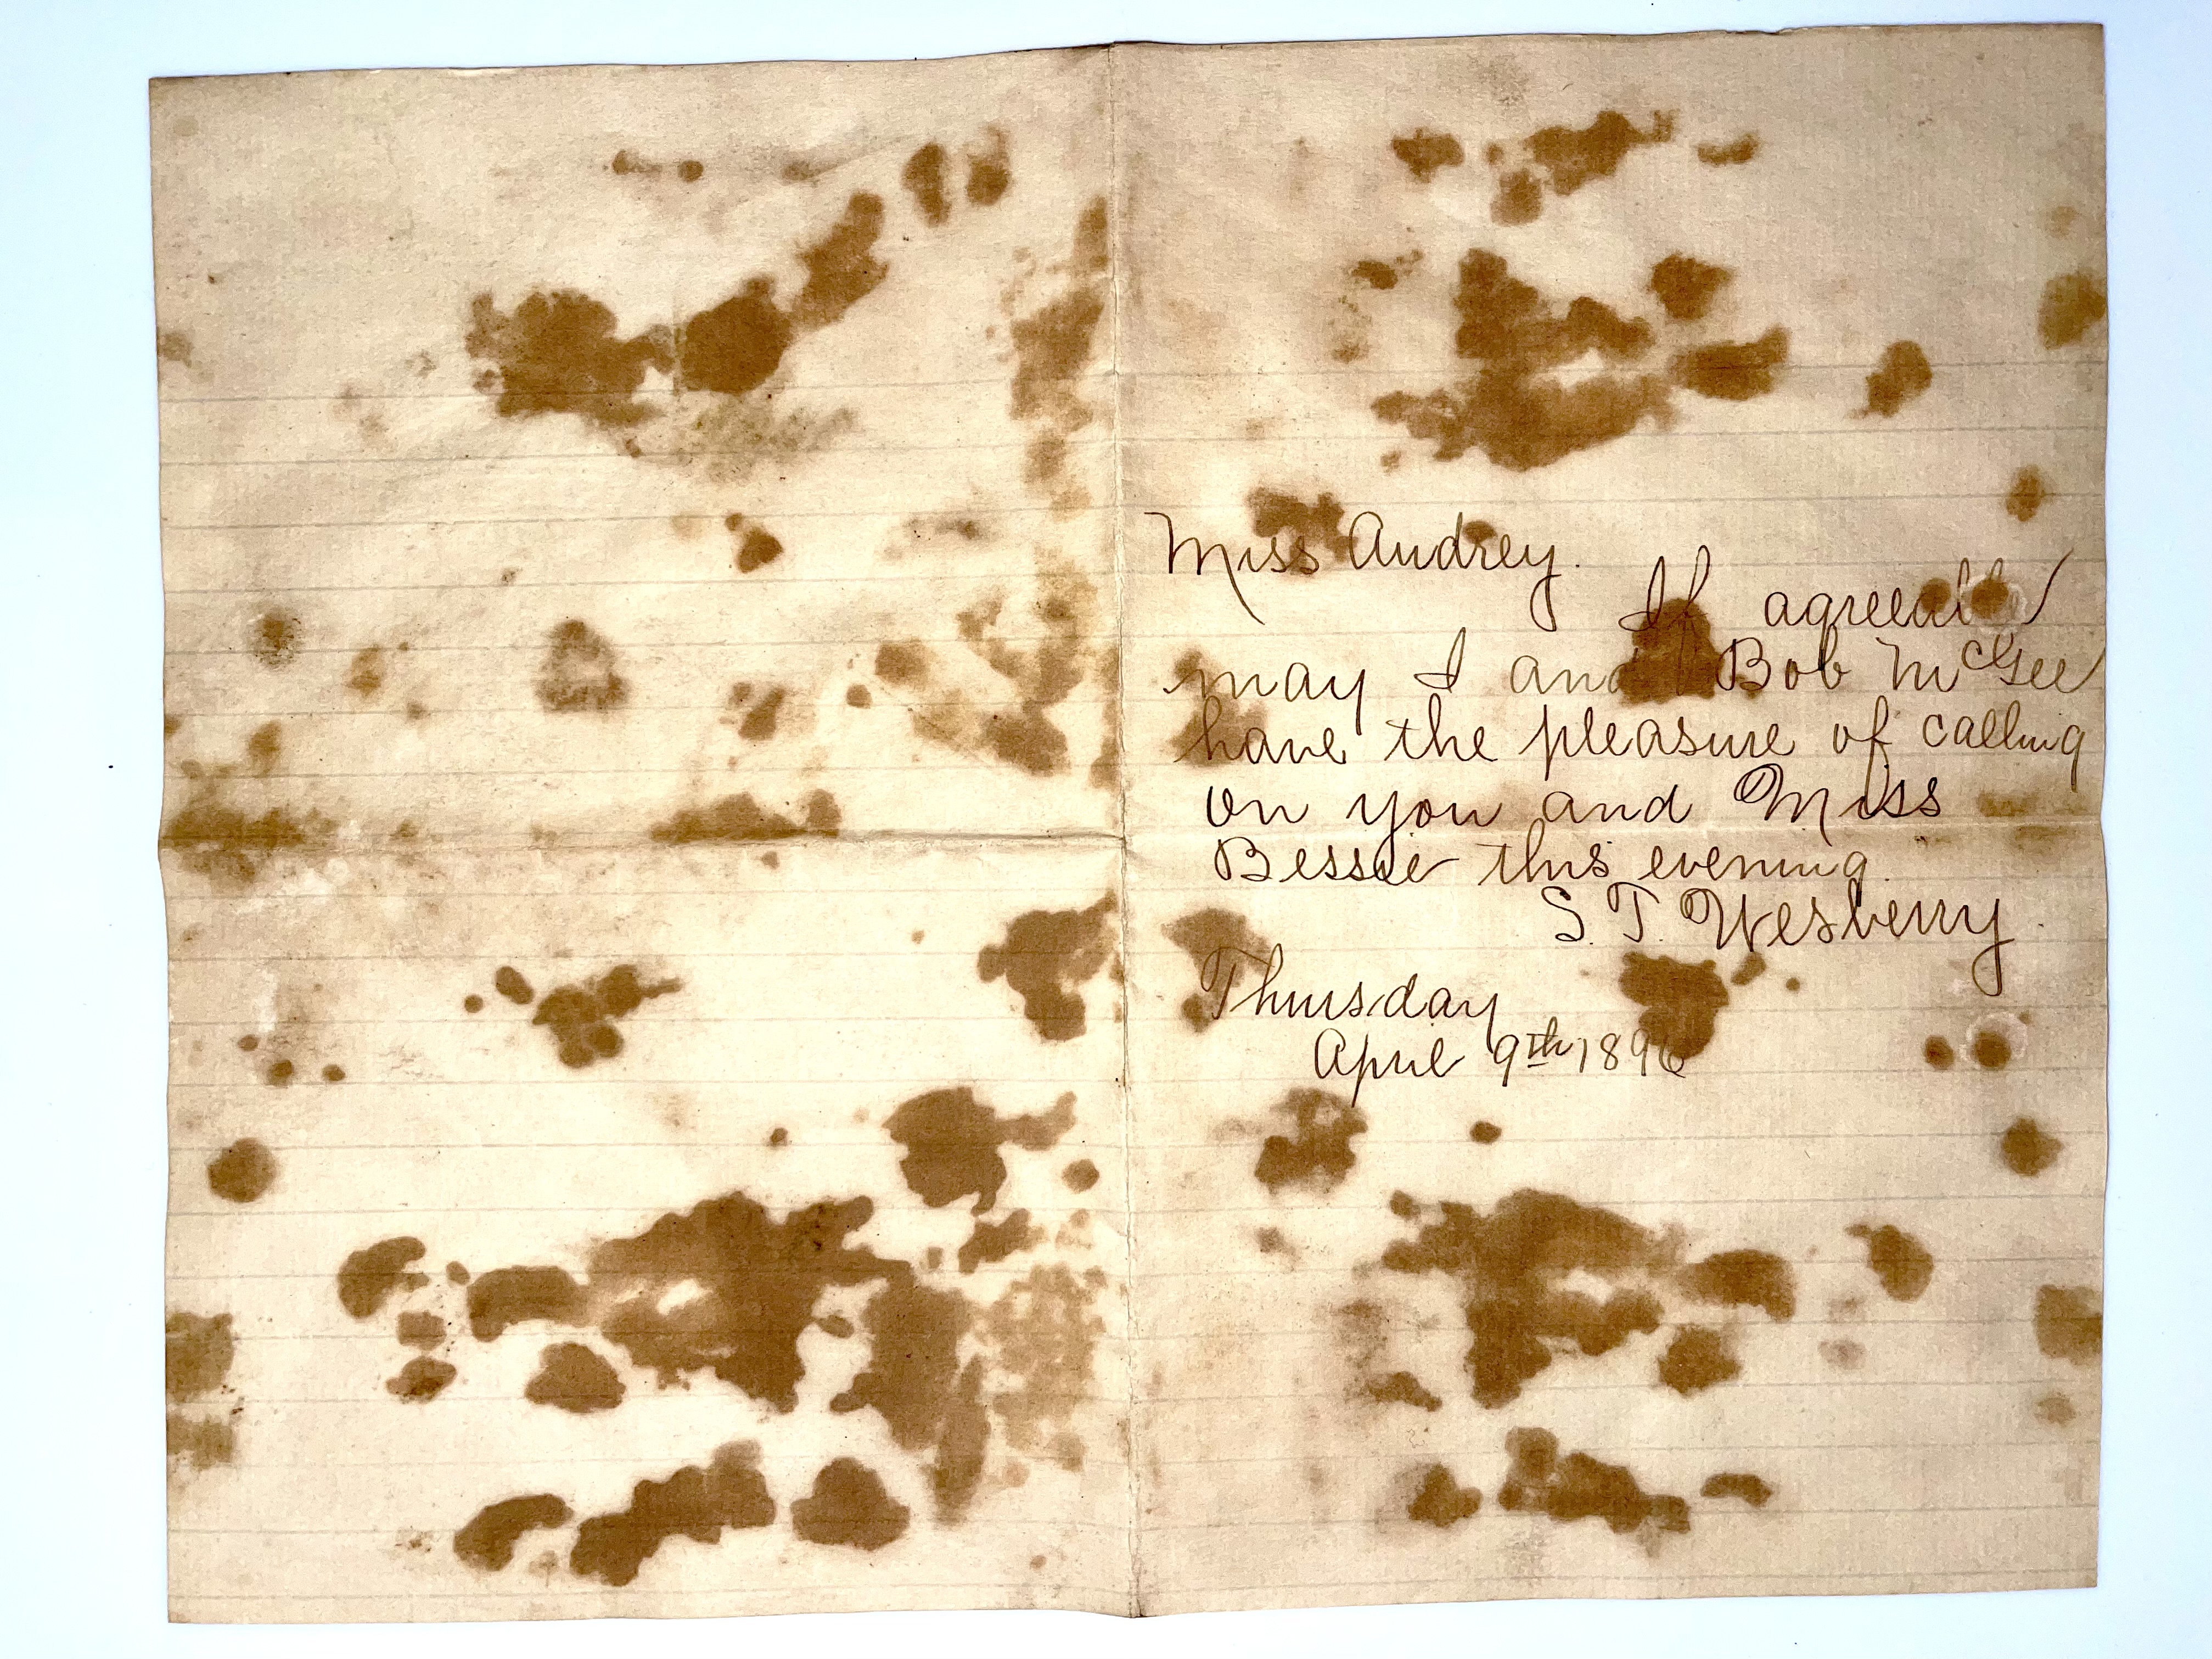 Miss Audrey.
If agreeable
may I and Bob McGee
have the pleasure of calling
on you and Miss
Bessie this evening.
S. T. Wesberry.
Thursday
April 9th 1896